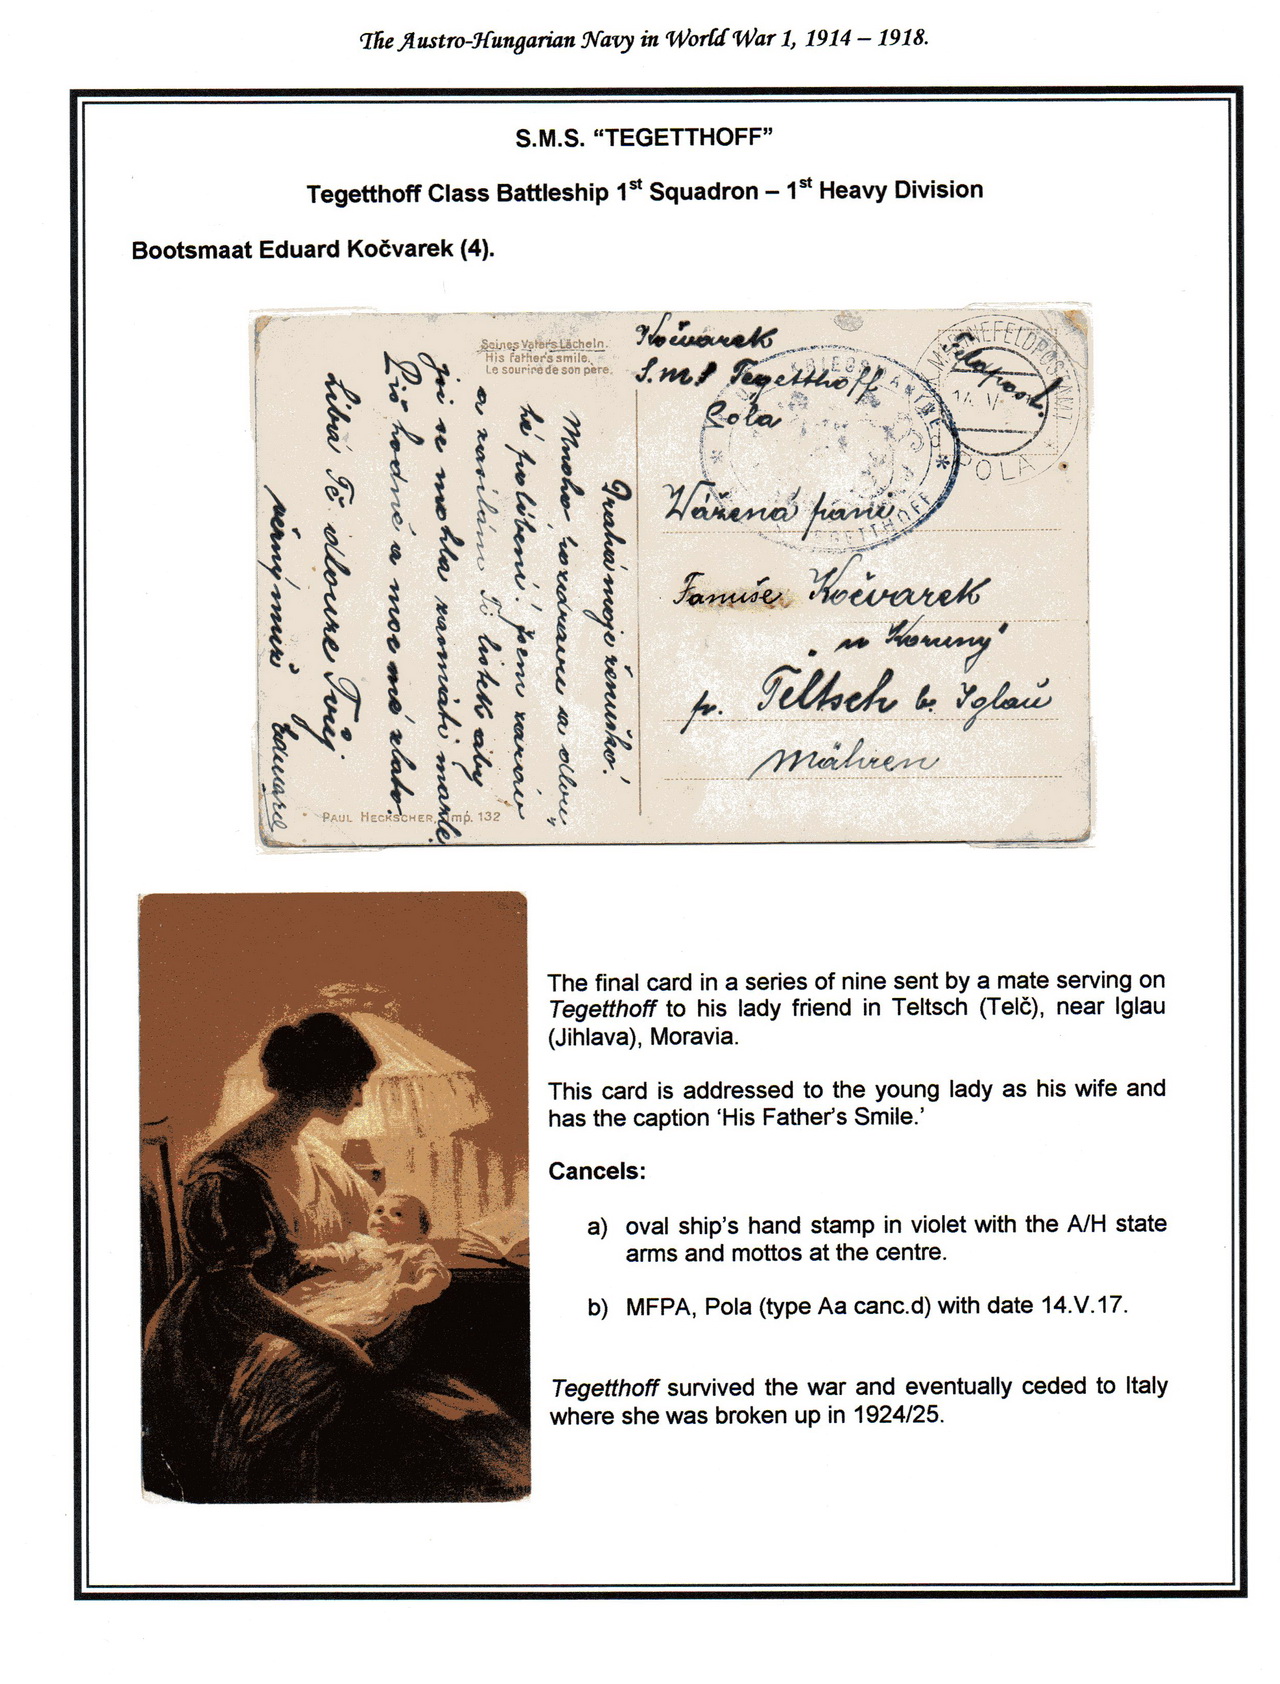 The Austro-Hungarian Navy in World War 1, 1914 – 1918.
S.M.S. “TEGETTHOFF”
Tegetthoff Class Battleship 1st Squadron – 1st Heavy Division
Bootsmaat Eduard Kočvarek (4).
Seines Vaters Lächeln.
His father's smile.
Le sourire de son père.
Drahá moje ženuško!
Mnoho pozdravu a dlou,,
hé políbení! Jsem zdráv
a zasílám Ti lístek aby
jsi se mohla zasmáti
Piš hodně a moc mé zlato.
Líbá Tě dlouze Tvůj
věrný muž Eduard
PAUL HECKSCHER, Imp. 132
Kočvarek
S.M.S Tegetthoff
Pola
Feldpost.
MARINEFELDPOSTAMT
14 V
POLA
KRIEGSMARINE
TEGETTHOFF
Vážená paní
Fanuše Kočvarek
„u Koruny“
p. Teltsch b. Iglau
Mähren
The final card in a series of nine sent by a mate serving on
Tegetthoff to his lady friend in Teltsch (Telč), near Iglau
(Jihlava), Moravia.
This card is addressed to the young lady as his wife and
has the caption ‘His Father’s Smile.’
Cancels:
a) oval ship’s hand stamp in violet with the A/H state
arms and mottos at the centre.
b) MFPA, Pola (type Aa canc.d) with date 14.V.17.
Tegetthoff survived the war and eventually ceded to Italy
where she was broken up in 1924/25.